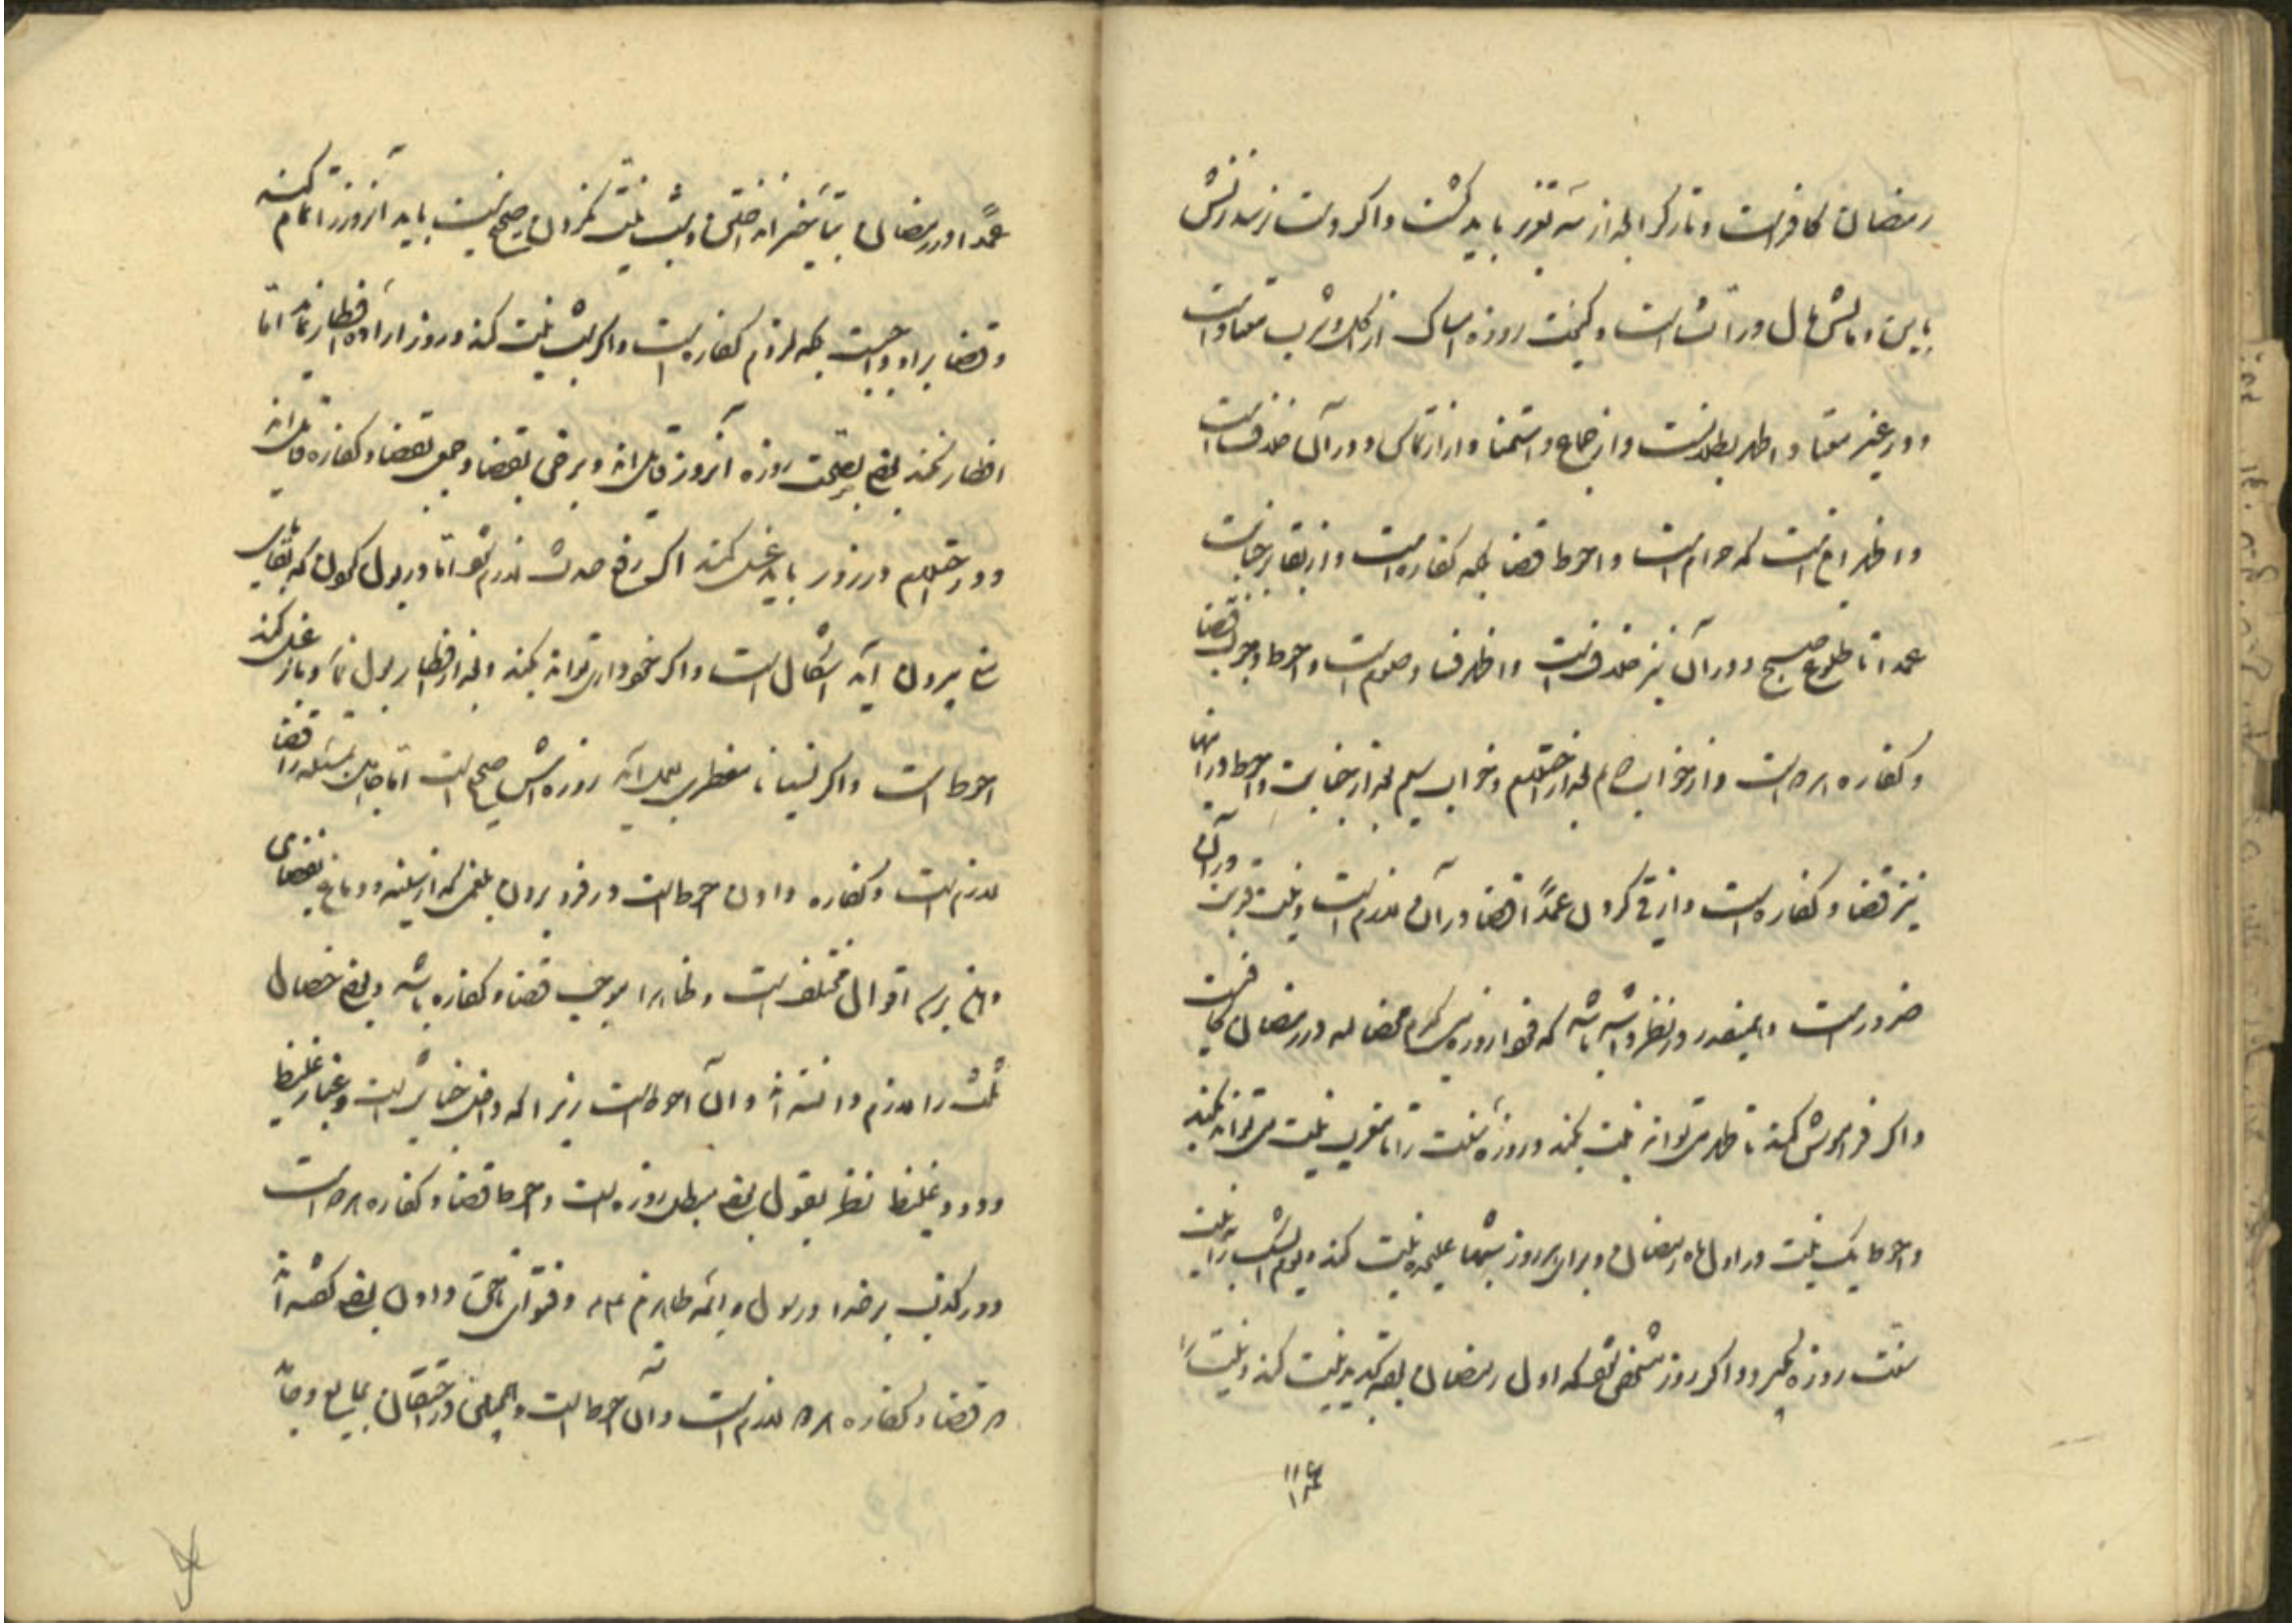 رمضان کافر است و تارکرا بعد از سه تعزیر باید کشت و اگر دست نرسد زنش
باین و مالش مال وراث است و کیفیت روزه امساک از اکل و شرب معتاد است
و در غیر معتاد اظهر بطلانست و از جماع و استمنا و از ارتماس و در آن خلافست
و اظهر اینست که حرام است و احوط قضا بلکه کفاره است و از بقاء بر جنابت
عمدا تا طلوع صبح و در آن نیز خلاف نیست و اظهر فساد صوم است و احوط وجوب قضا
و کفاره است و از خواب بعد از احتلام و خواب سیم بعد از جنابت و احوط در اینها
نیز قضا و کفاره است و از قی کردن عمدًا قضا در آن لازم است و نیت قربت در آن
ضرور است و اینقدر در نظر داشته باشد که فردا روزه رمضان در رمضان کافیست
و اگر فراموش کند تا ظهر می تواند نیت بکند و روزه سنت را تا مغرب نیت می تواند بکند
و احوط یک نیت در اول ماه رمضان و برای هر روز شبها علیحده نیت کند و یوم الشک را نیت
سنت روزه بگیرد و اگر روز مشخص شود که اول رمضان بوده تجدید نیت کند و نیت را
۱۱۴
عمدًا در رمضان بتأخیر انداختن و بشب نیت نکردن صحیح نیست باید آنروز را تمام کند
و قضا بر او واجبست بلکه لزوم کفاره است و اگر بشب نیت کند و روز اراده افطار نماید اما
افطار نکند بعضی بصحت روزه آنروز قایل اند و برخی بقضا و جمعی بقضا و کفاره قایل اند
و در احتلام در روز باید غسل کند اگر رفع حدث لازم شود اما در بول کردن که بقایای
منی بیرون آید اشکال است و اگر خودداری تواند بکند و بعد از افطار بول نماید و باز غسل کند
احوط است و اگر نسیانا مفطری بعمل آید روزه اش صحیح است اما جاهل مسئله را قضا
لازم است و کفاره دادن احوط است در فرو بردن بلغمی که از سینه و دماغ بفضای
دهن برسد اقوال مختلف است و ظاهرا موجب قضا و کفاره باشد و بعضی خصال
ثلث را لازم دانسته اند و آن احوط است زیرا که داخل خبایث است و غبار غلیظ
و دود غلیظ نظر بقول بعضی مبطل روزه است و احوط قضا و کفاره است
و در کذب بر خدا و رسول و ائمه طاهرین و فتوای ناحق دادن بعضی گفته اند
قضا و کفاره لازم است و آن احوط است و همچنین در احتقان بمایع و جامد